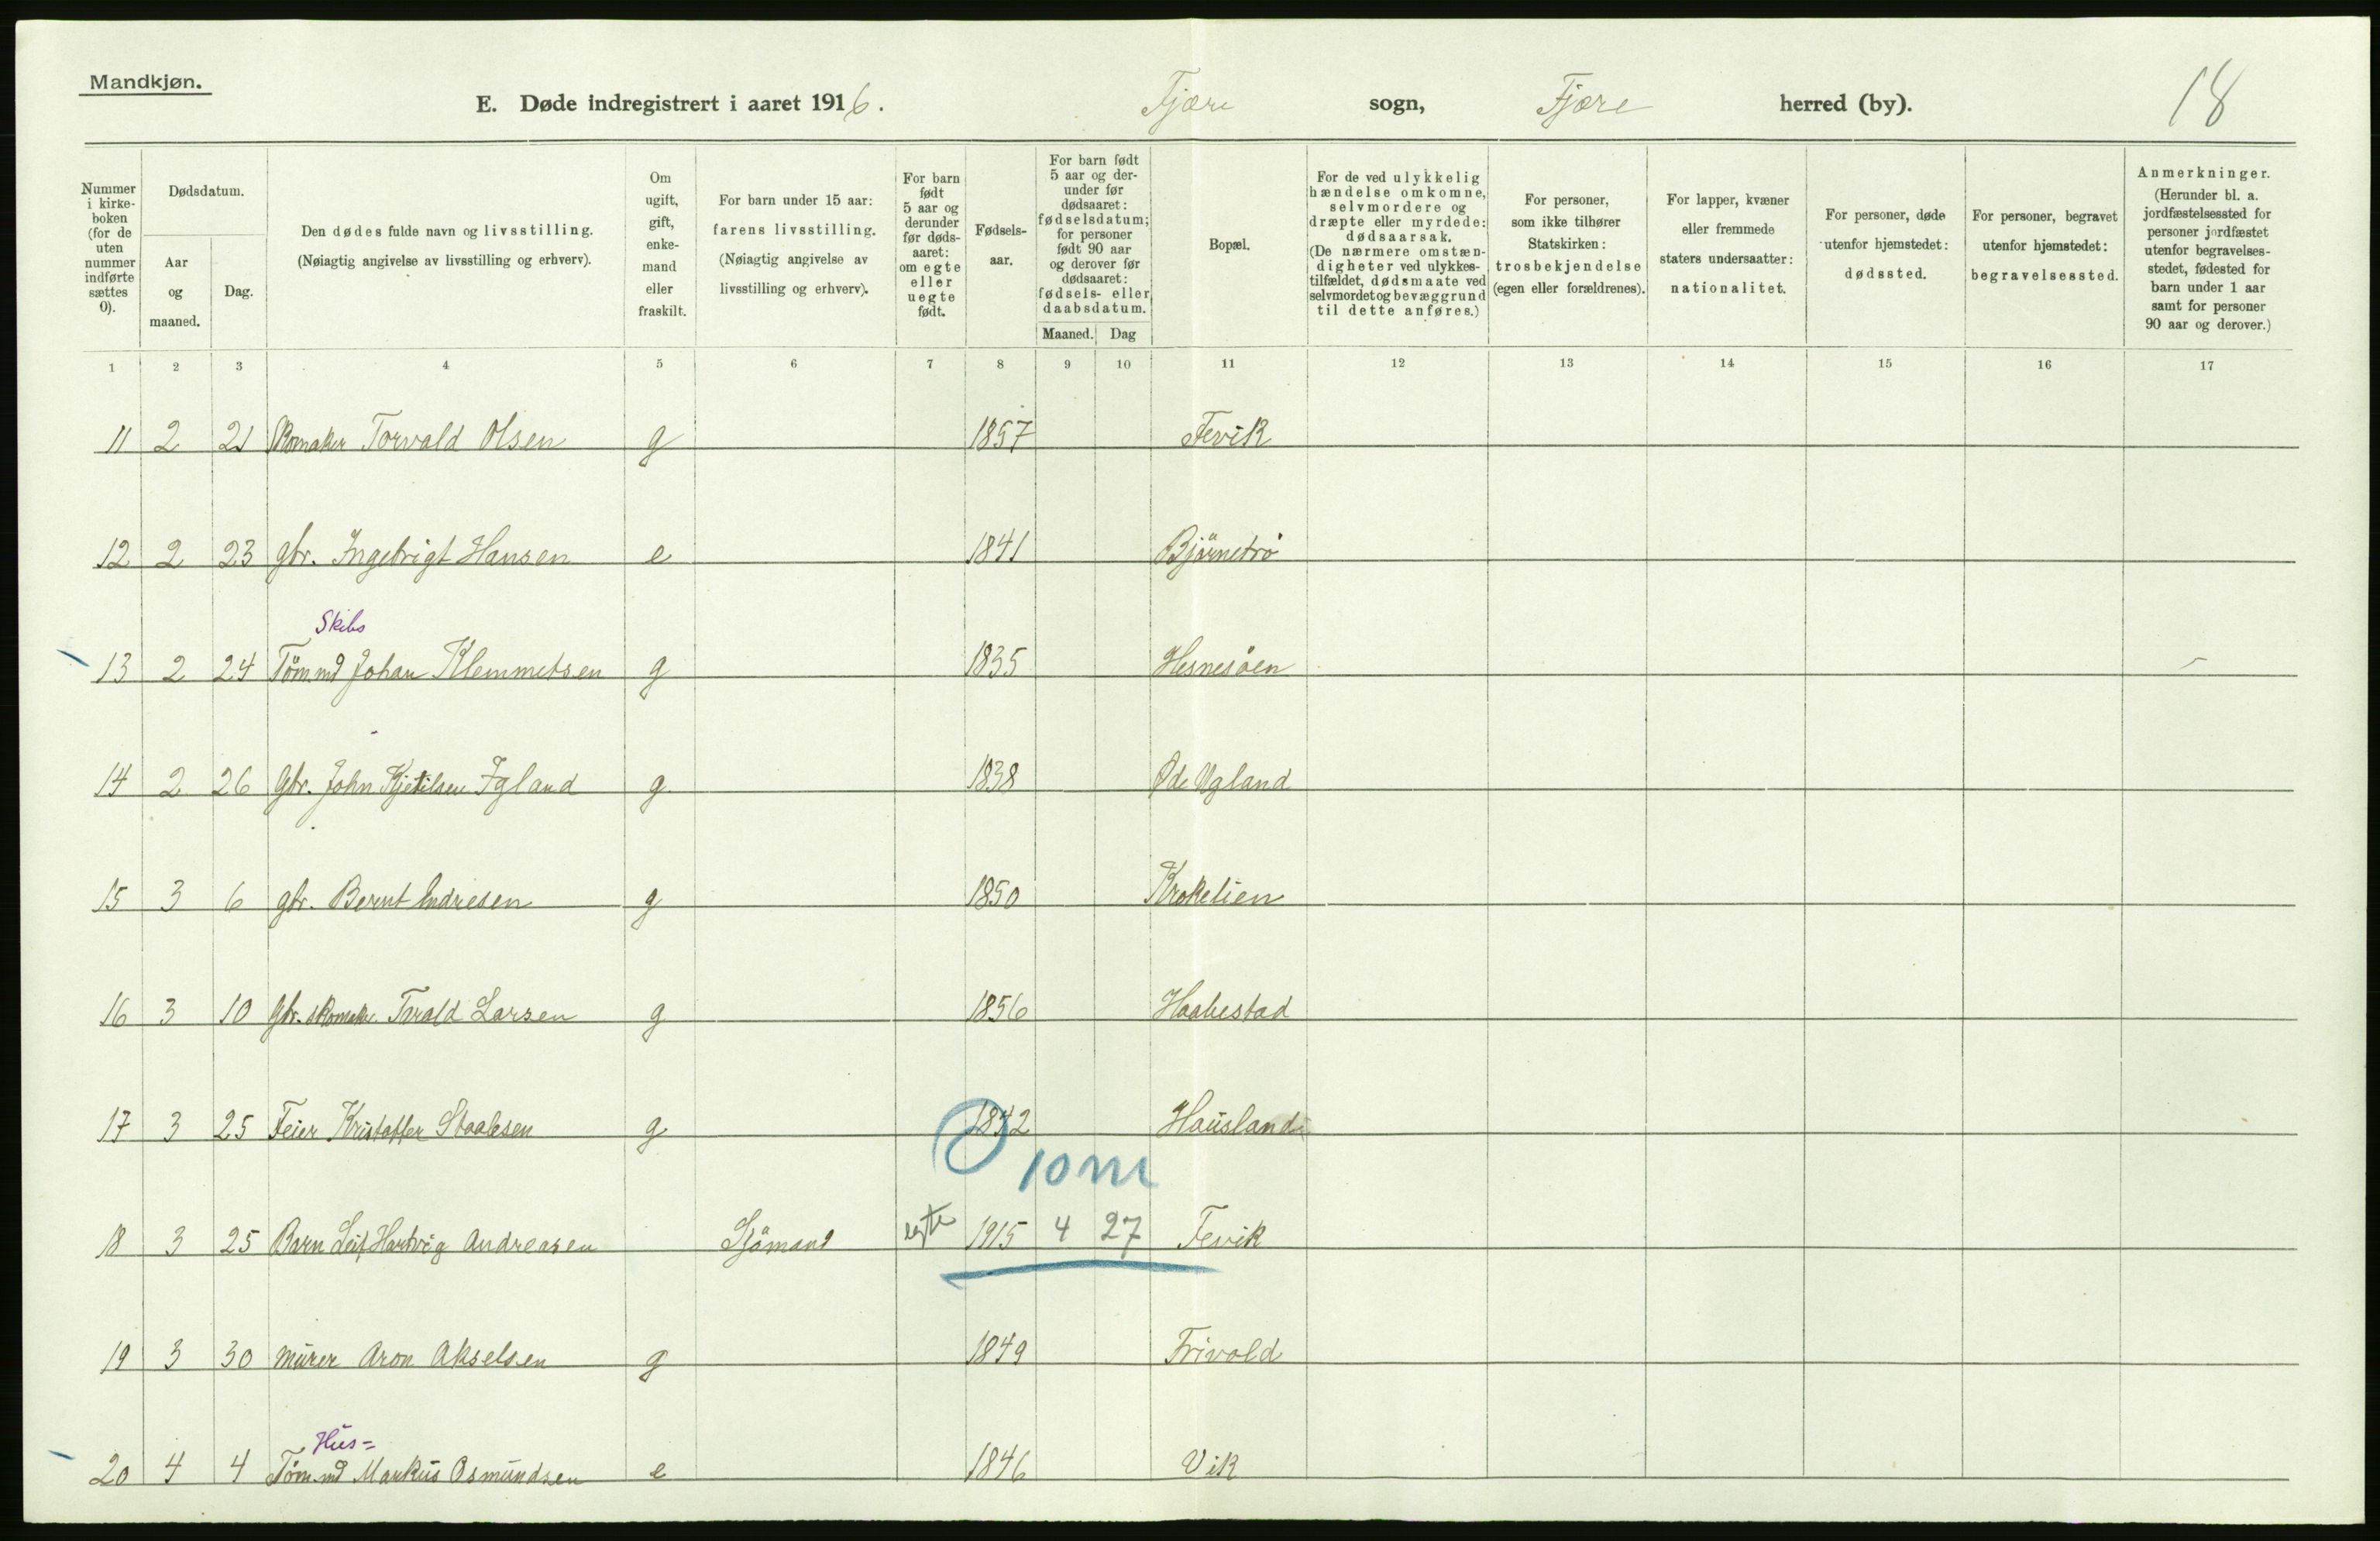 Mandkjøn.
E. Døde indregistrert i aaret 1916. Fjære sogn, Fjære herred (by). 18
Nummer i kirke-boken (for de uten nummer indførte sættes 0).
Dødsdatum.
Aar og maaned.
Dag.
Den dødes fulde navn og livsstilling.
(Nøiagtig angivelse av livsstilling og erhverv).
Om ugift, gift, enke-mand eller fraskilt.
For barn under 15 aar: farens livsstilling.
(Nøiagtig angivelse av livsstilling og erhverv).
For barn født 5 aar og derunder før døds-aaret: om egte eller uegte født.
Fødsels-aar.
For barn født 5 aar og der-under før dødsaaret: fødselsdatum; for personer født 90 aar og derover før dødsaaret: fødsels- eller daabsdatum.
Maaned. Dag
Bopæl.
For de ved ulykkelig hændelse omkomne, selvmordere og dræpte eller myrdede: dødsaarsak.
(De nærmere omstæn-digheter ved ulykkes-tilfældet, dødsmaate ved selvmordet og bevæggrund til dette anføres.)
For personer, som ikke tilhører Statskirken: trosbekjendelse (egen eller forældrenes).
For lapper, kvæner eller fremmede staters undersaatter: nationalitet.
For personer, døde utenfor hjemstedet: dødssted.
For personer, begravet utenfor hjemstedet: begravelsessted.
Anmerkninger.
(Herunder bl. a. jordfæstelsessted for personer jordfæstet utenfor begravelses-stedet, fødested for barn under 1 aar samt for personer 90 aar og derover.)
1 2 3 4 5 6 7 8 9 10 11 12 13 14 15 16 17
11 2 21 Skomaker Torvald Olsen g 1857 Fevik
12 2 23 gbr. Ingebrigt Hansen e 1841 Bjørnebro
Skibs
13 2 24 Tömmd Johan Klemmetsen g 1835 Hesnesöen
14 2 26 Gbr. John Kjetilsen Igland g 1838 Øde Ugland
15 3 6 gbr. Bernt Endresen g 1850 Krokelien
16 3 10 Gbr. skomaker Terald Larsen g 1856 Haabestad
17 3 25 Feier Kristoffer Staalesen g 1842 Hausland
10 m
18 3 25 Barn Leif Hartvig Andreasen Sjömand egte 1915 4 27 Fevik
19 3 30 Murer Aron Akselsen g 1849 Frivold
Hus=
20 4 4 Tömmd Markus Osmundsen e 1846 Vik